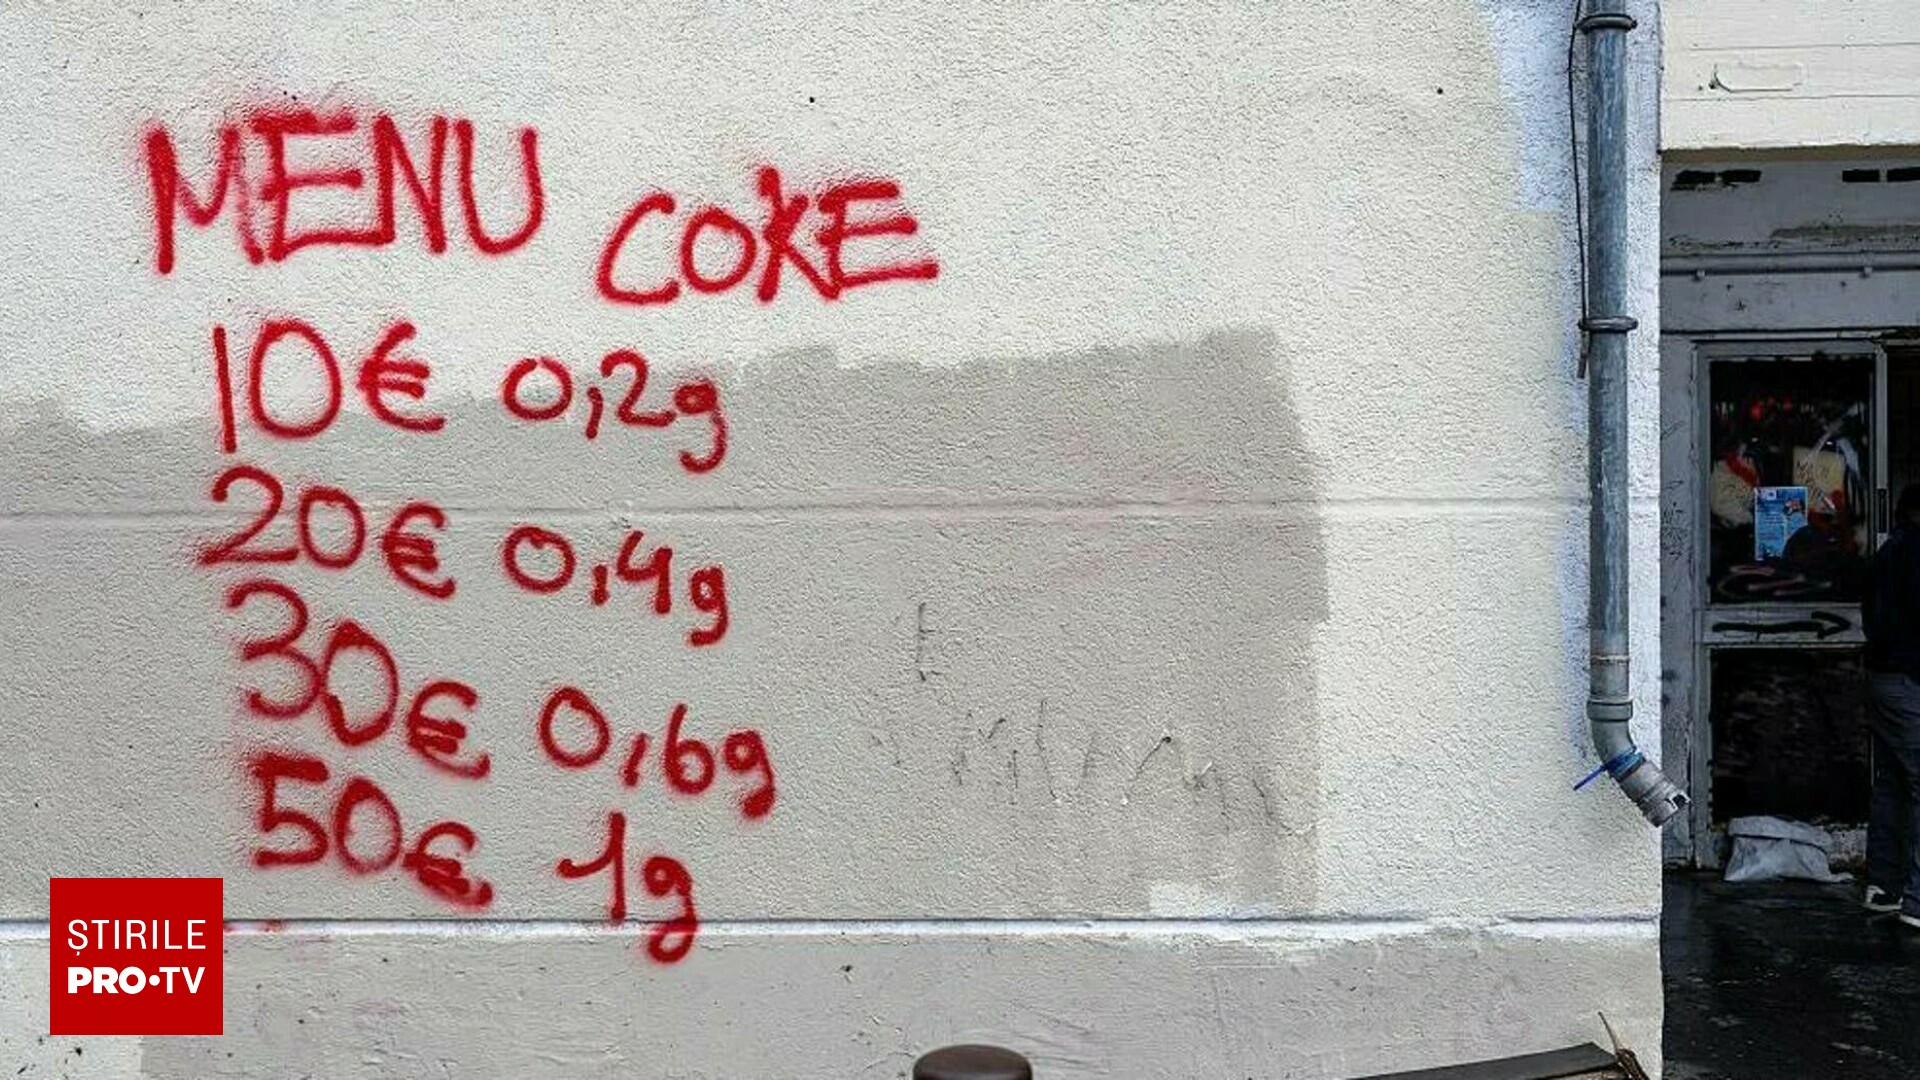 MENU COKE
10€ 0,2g
20€ 0,4g
30€ 0,6g
50€ 1g
ȘTIRILE
PRO•TV